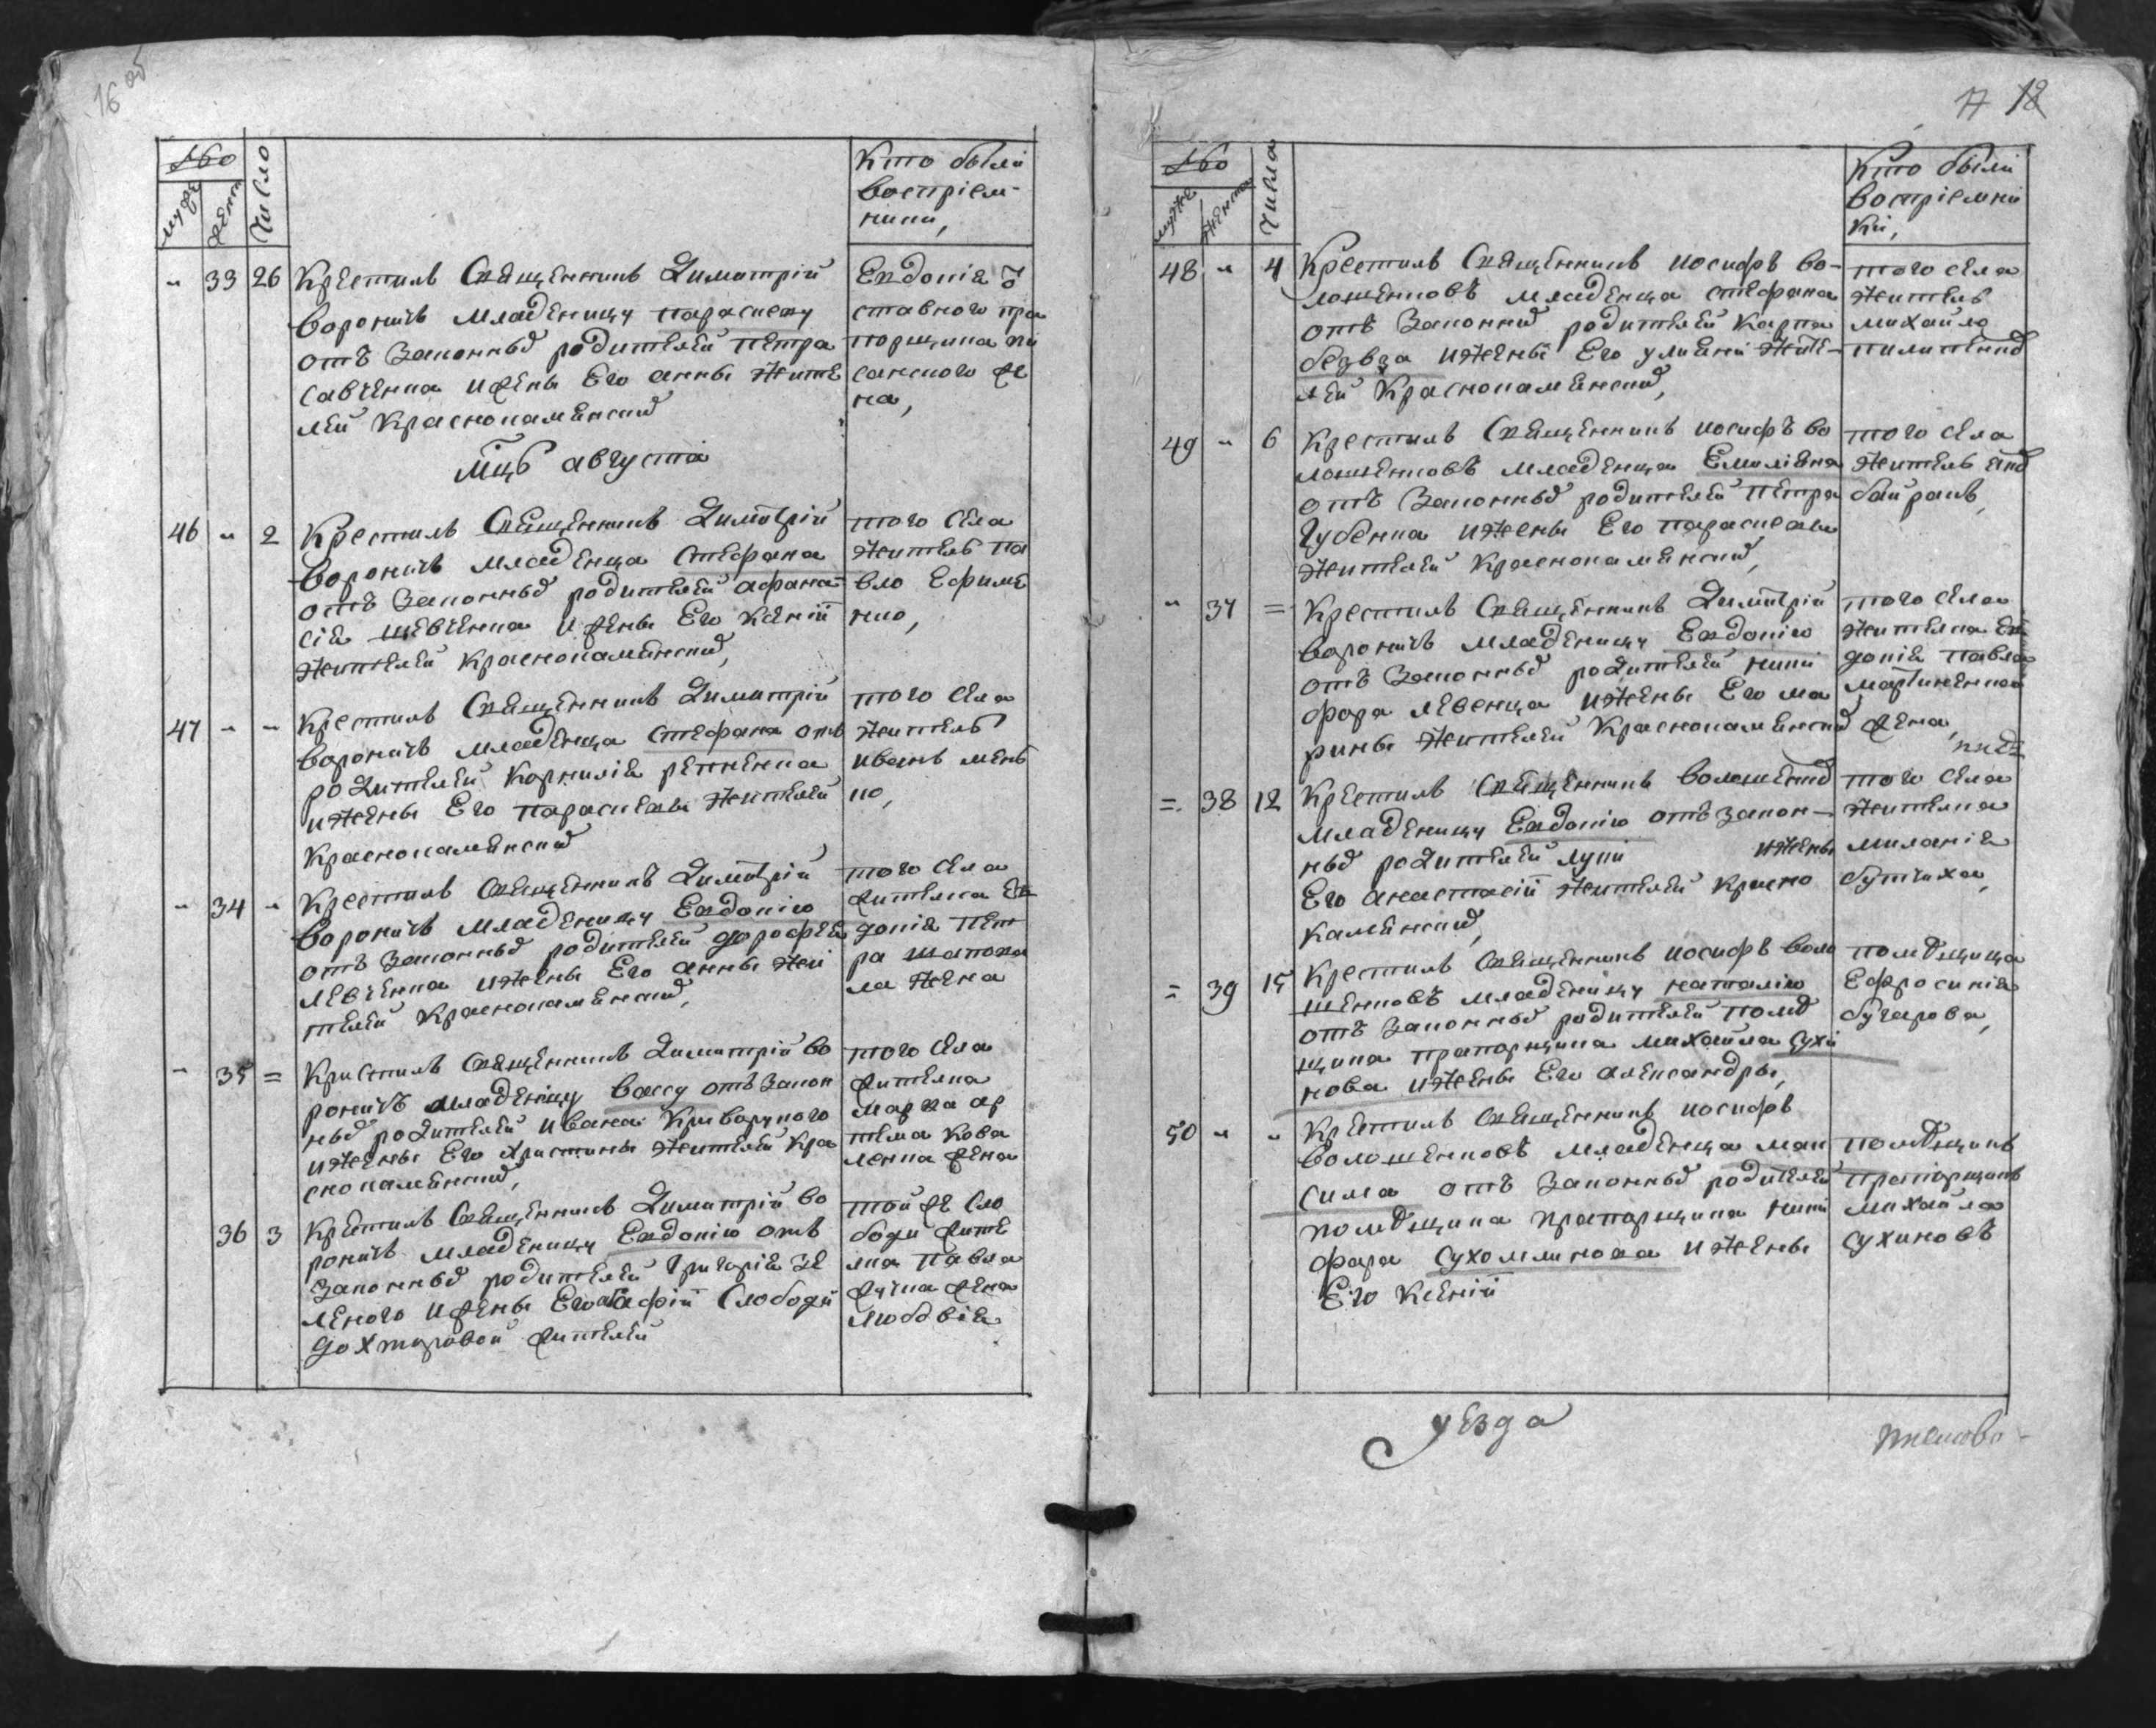 16 об
№о
муж
жен
Число
Кто были
воспріем-
ники,
" 33 26 Крестилъ Священникъ Димитрій
Вороничъ младеницу параскеву
отъ Законныхъ родителей петра
Савченка и жены Его анны жите
лей Краснокаменскихъ
Евдокія
ставного пра
порщика
санского же
на,
Мцъ августа
46 " 2 Крестилъ Священникъ Димитрій
Вороничъ младенца Стефана
отъ Законныхъ родителей афана
сія шевченка и жены Его Ксеніи
жителей Краснокаменскихъ,
того села
житель па
вло Ефиме
нко,
47 " " Крестилъ Священникъ Димитрій
Вороничъ младенца Стефана отъ
родителей Корнилія
и жены Его параскевы жителей
Краснокаменскихъ
того села
житель
иванъ
ко,
" 34 " Крестилъ Священникъ Димитрій
Вороничъ младеницу Евдокію
отъ законныхъ родителей дорофея
левченка и жены Его анны жи
телей Краснокаменскихъ,
того села
жителка Ев
докія пет
ра шапова
ла жена
" 35 = Кристилъ Священникъ Димитрій Во
роничъ младеницу вассу отъ закон
ныхъ родителей ивана Криворучкого
и жены Его христины жителей Кра
снокаменскихъ,
того села
жителка
марѳа ар
тема Кова
ленка жена
36 3 Крестилъ Священникъ Димитрій Во
роничъ младеницу Евдокію отъ
законныхъ родителей григорія зе
леного и жены Его агафіи Слободи
дохторовой жителей
той же сло
боди жите
лка павла
жена
любовія
17 18
№о
муже
женска
Числа
Кто были
воспріемни
ки,
48 " 4 Крестилъ Священникъ иосифъ во-
лошенковъ младенца стефана
отъ Законныхъ родителей Карпа
и жены Его уліяни жите-
лей Краснокаменскихъ,
того села
житель
михайло
49 " 6 Крестилъ Священникъ иосифъ во
лошенковъ младенца Емиліяна
отъ Законныхъ родителей петра
губенка и жены Его параскевы
жителей Краснокаменскихъ,
того села
житель
байракъ,
" 37 = Крестилъ Священникъ Димитрій
Вороничъ младеницу Евдокію
отъ Законныхъ родителей ники
фора левенца и жены Его ма
рины жителей Краснокаменскихъ
того села
жителка Ев
докія павла
мартиненка
жена,
= 38 12 Крестилъ Священникъ волошенко
младеницу Евдокію отъ закон-
ныхъ родителей луки и жены
Его анастасіи жителей красно
каменскихъ,
того села
жителка
миланія
бутчиха,
= 39 15 Крестилъ Священникъ иосифъ воло
шенковъ младеницу наталію
отъ законныхъ родителей помѣ
щика прапорщика михайла Сухи
нова и жены Его александры,
помѣщица
Ефросинія
бучарова,
50 " " Крестилъ Священникъ иосифъ
волошенковъ младенца мак
сима отъ Законныхъ родителей
помѣщика прапорщика ники
фора Сухомлинова и жены
Его Ксеніи
помѣщикъ
прапорщикъ
михайла
сухиновъ
уезда